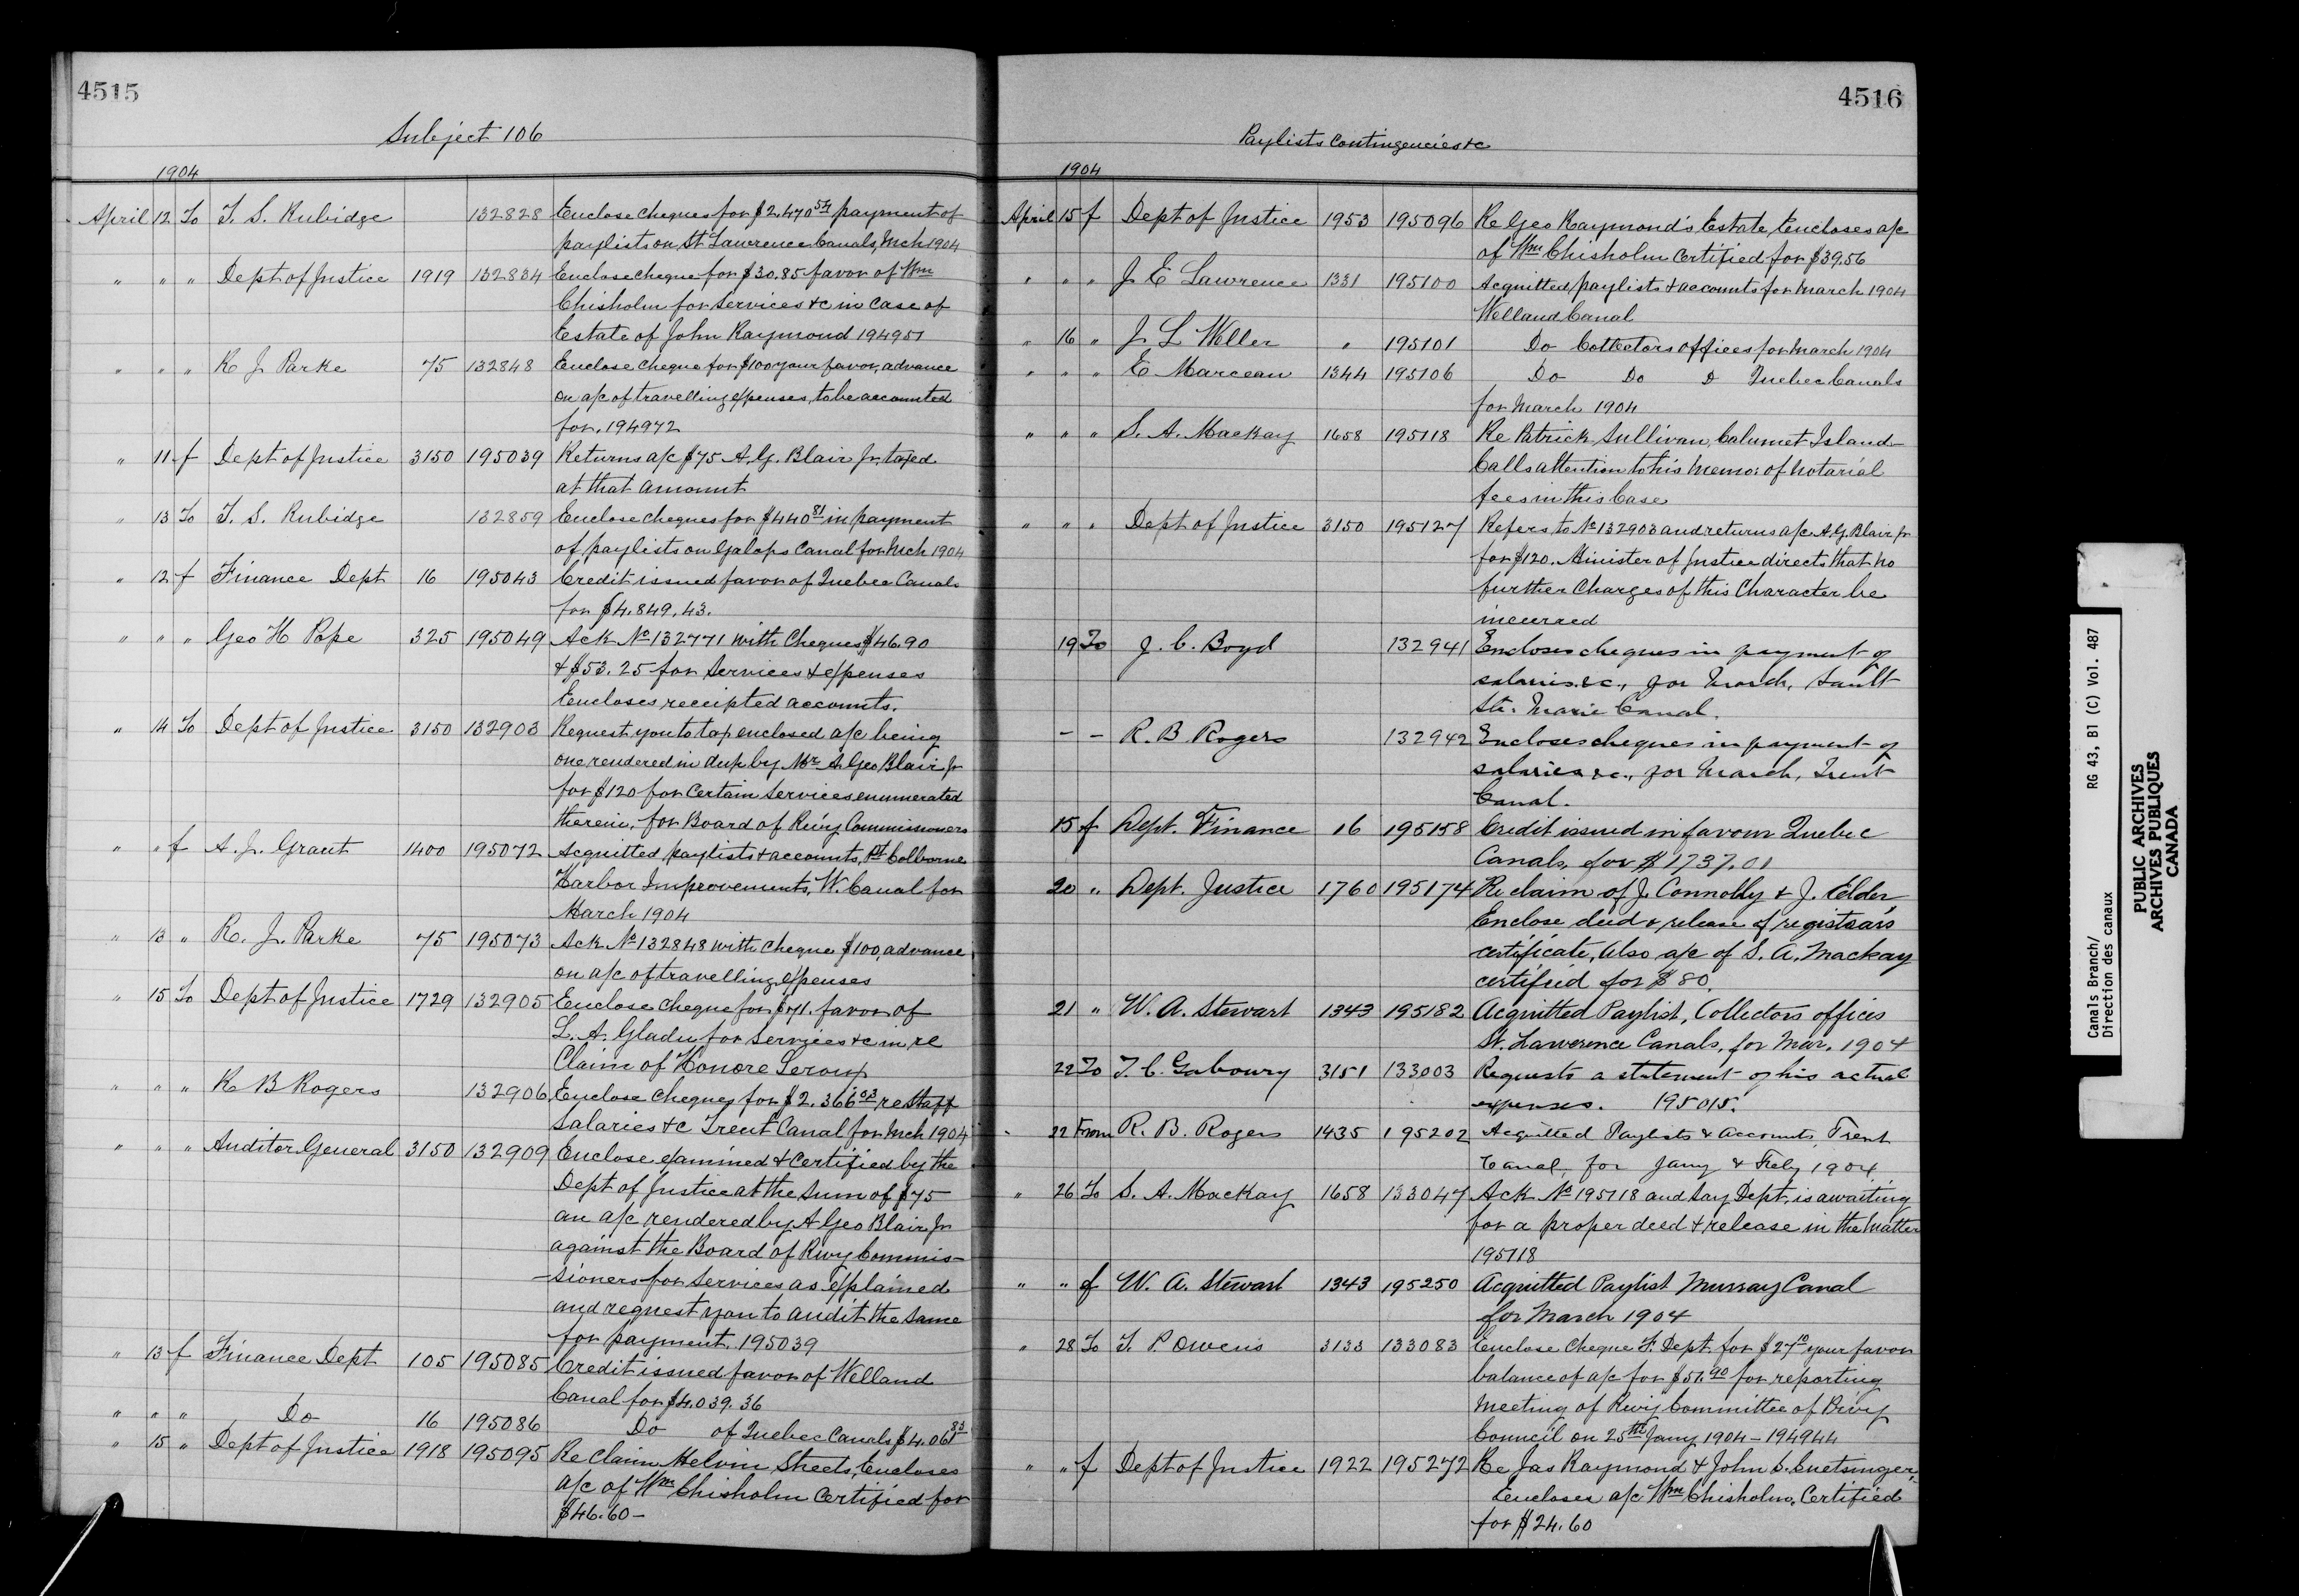 4515
Subject 106
1904
April 12 To T. S. Rubidge 132828 Enclose cheques for $2.470 54 payment of
paylists on St Lawrence Canals, Mch 1904
" " " Dept of Justice 1919 132834 Enclose cheque for $30.85 favor of Wm
Chisholm for services &c in case of
Estate of John Raymond 194951
" " " R J Parke 75 132848 Enclose cheque for $100 your favor, advance
on a/c of travelling expenses, to be accounted
for. 194972
" 11 f Dept of Justice 3150 195039 Returns a/c $75 A. G. Blair Jr. taxed
at that amount
" 13 To T. S. Rubidge 132859 Enclose cheques for $440 81 in payment
of paylists on Galops Canal for Mch 1904
" 12 f Finance Dept 16 195043 Credit issued favor of Quebec Canals
for $4.849.43.
" " " Geo H Pope 325 195049 Ack No 132771 with Cheques $46.90
& $53.25 for services & expenses
Encloses receipted accounts.
" 14 To Dept of Justice 3150 132903 Request you to tax enclosed a/c being
one rendered in dup by Mr A. Geo Blair Jr
for $120 for certain services enumerated
therein, for Board of Rwy Commissioners
" " f A. J. Grant 1400 195072 Acquitted paylists & accounts, Pt Colborne
Harbor Improvements, W. Canal for
March 1904
" 13 " R. J. Parke 75 195073 Ack No 132848 with cheque $100, advance
on a/c of travelling expenses
" 15 To Dept of Justice 1729 132905 Enclose cheque for $71. favor of
L. A. Gladu for services &c in re
Claim of Honore Leroux
" " " R B Rogers 132906 Enclose cheques for $2.366 03 re staff
salaries &c Trent Canal for Mch 1904
" " " Auditor General 3150 132909 Enclose examined & certified by the
Dept of Justice at the sum of $75
an a/c rendered by A Geo Blair Jr
against the Board of Rwy Commis-
-sioners for services as explained
and request you to audit the same
for payment. 195039
" 13 f Finance Dept 105 195085 Credit issued favor of Welland
Canal for $4.039.36
" " " Do 16 195086 Do of Quebec Canals $4.061 83
" 15 " Dept of Justice 1918 195095 Re Claim Melvin Streets, Encloses
a/c of Wm Chisholm certified for
$46.60 -
4516
Paylists Contingencies &c
1904
April 15 f Dept of Justice 1953 195096 Re Geo Raymond's Estate, Encloses a/c
of Wm Chisholm certified for $39.56
" " " J E Lawrence 1331 195100 Acquitted paylists & accounts for March 1904
Welland Canal
" 16 " J L Weller " 195101 Do Collectors offices for March 1904
" " " E Marceau 1344 195106 Do Do D Quebec Canals
for March 1904
" " " S. A. Mackay 1658 195118 Re Patrick Sullivan, Calumet Island
Calls attention to his memo: of notarial
fees in this case
" " " Dept of Justice 3150 195127 Refers to No 132903 and returns a/c A. G. Blair Jr
for $120. Minister of Justice directs that no
further charges of this character be
incurred
19 To J. C. Boyd 132941 Encloses cheques in payment of
salaries &c., for March, Sault
Ste. Marie Canal.
- - R. B. Rogers 132942 Encloses cheques in payment of
salaries &c., for March, Trent
Canal.
15 f Dept. Finance 16 195158 Credit issued in favour Quebec
Canals, for $1737.01
20 " Dept. Justice 1760 195174 Re claim of J. Connolly & J. Elder,
Enclose deed & release of registrar's
certificate, Also a/c of S. A. Mackay
certified for $80.
21 " W. A. Stewart 1343 195182 Acquitted Paylist, Collectors offices
St. Lawrence Canals, for Mar. 1904
22 To T. C. Gaboury 3151 133003 Requests a statement of his actual
expenses. 195015.
22 From R. B. Rogers 1435 195202 Acquitted Paylists & accounts, Trent
Canal, for Jany & Feby 1904.
" 26 To S. A. MacKay 1658 133047 Ack No 195118 and say Dept. is awaiting
for a proper deed & release in the matter
195118
" " f W. A. Stewart 1343 195250 Acquitted Paylist Murray Canal
for March 1904
" 28 To T. P. Owens 3133 133083 Enclose cheque F. Dept. for $27 10 your favor
balance of a/c for $51.90 for reporting
meeting of Rwy Committee of Privy
Council on 25th Jany 1904 - 194944
" " f Dept of Justice 1922 195272 Re Jas Raymond & John S. Cuetsinger,
Encloses a/c Wm Chisholm, Certified
for $24.60
Canals Branch/
Direction des canaux
RG 43, B1 (C) Vol. 487
PUBLIC ARCHIVES
ARCHIVES PUBLIQUES
CANADA